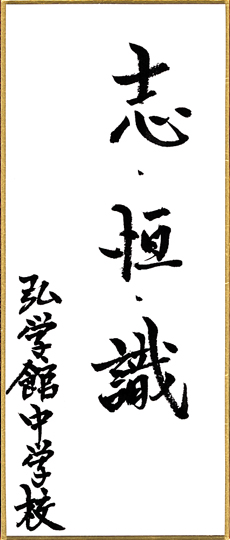 志・恒・識
弘学館中学校